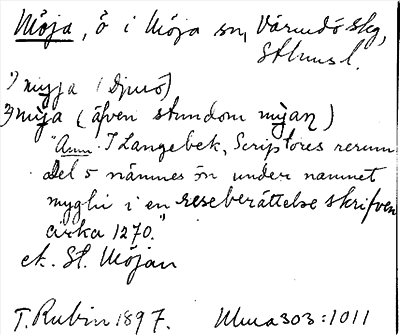 Möja, ö i Möja sn, Värmdö skg,
Sthms l.
1) myja (Djurö)
2) mỳja (äfven stundom mỳan)
"Anm. I Langebek, Scriptores rerum
del 5 nämnes ön under namnet
myghi i en reseberättelse skrifven
cirka 1270."
ek. St. Möjan
T. Rubin 1897. Muua303:1011